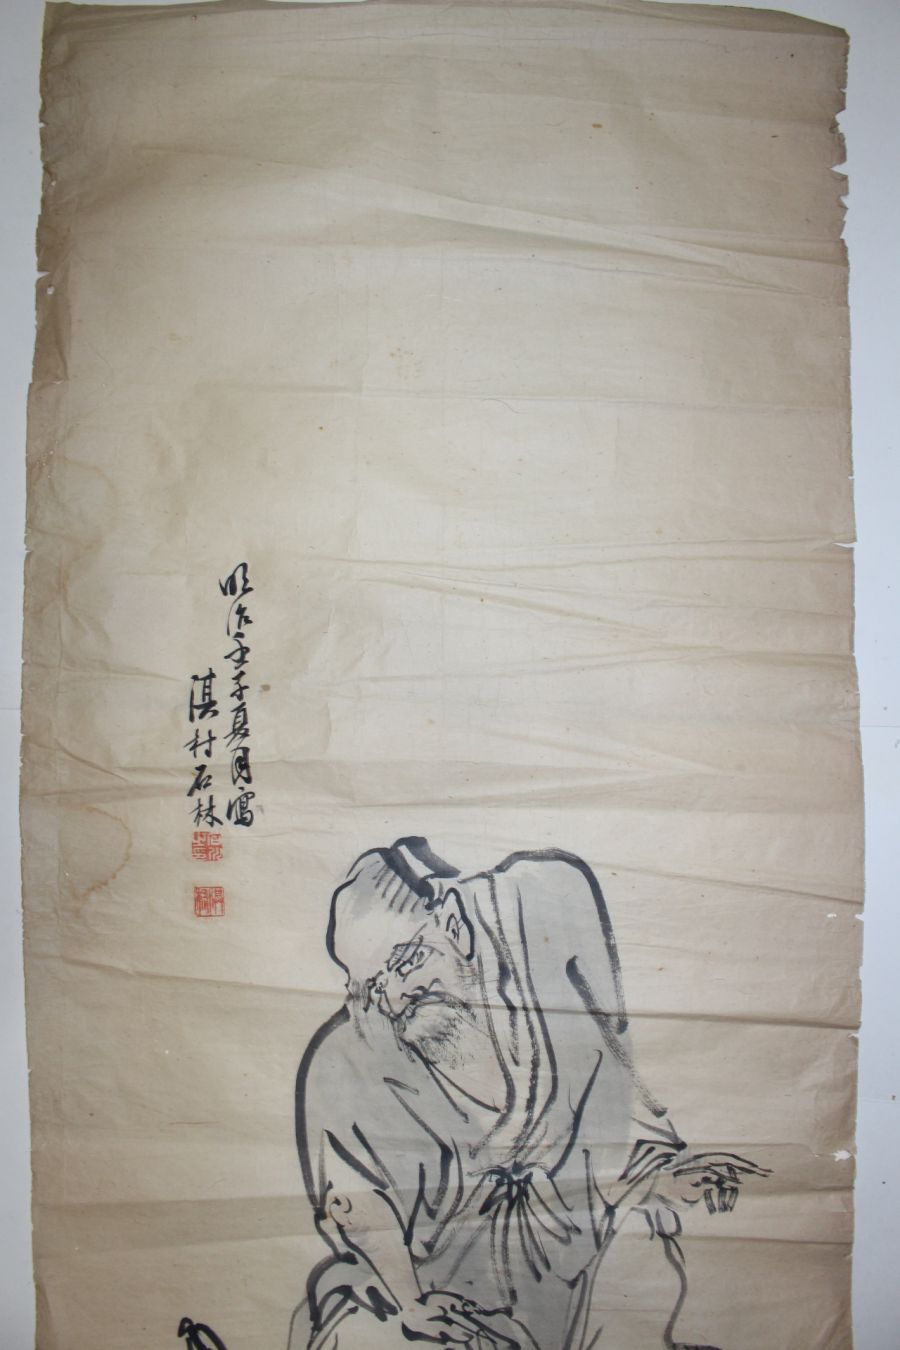 明治壬子夏月寫
淇村石林